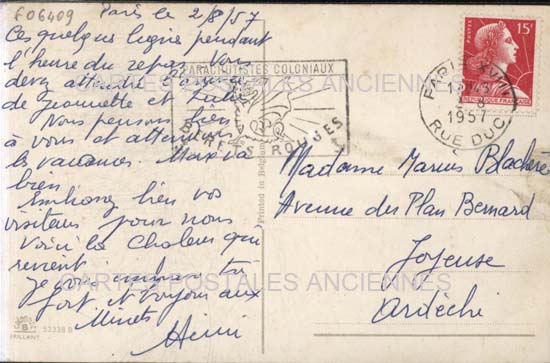 F06409
Paris le 2/8/57
Ces quelques lignes pendant
l'heure du repas. Vous
devez attendre
de Jeannette et
Nous pensons bien
à vous et attendons
les vacances. va
bien
Embrassez bien vos
visiteurs pour nous
Voici la chaleur qui
revient
Je vous
fort et toujours aux
Minets
Henri
BRILLANT
53338 B
Printed in Belgium
PARACHUTISTES COLONIAUX
BERETS ROUGES
PARIS XVII
1957
RUE DUC
POSTES
15F
REPUBLIQUE FRANCAISE
Madame Marius Blachère
Avenue du Plan Bernard
Joyeuse
Ardèche
CARTES POSTALES ANCIENNES
CARTES POSTALES ANCIENNES